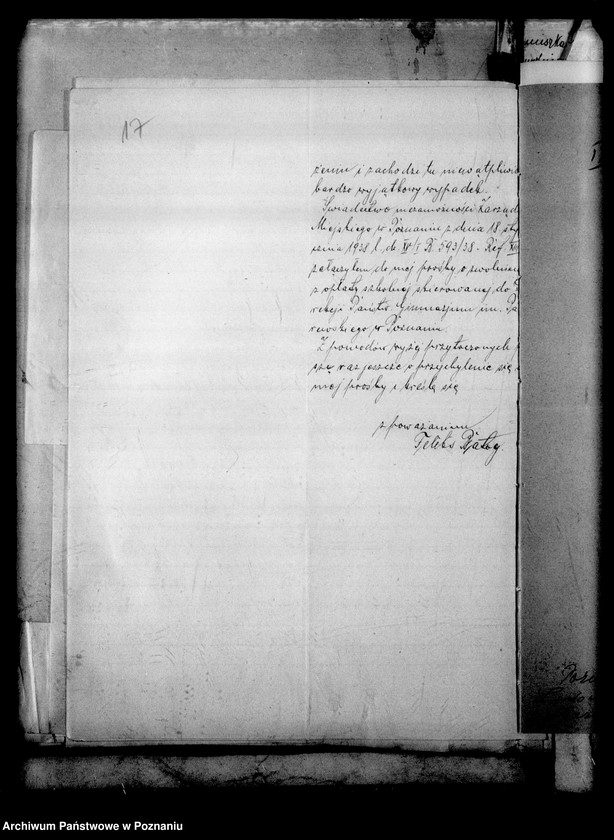 17
żeniu i zachodzi tu niewątpliwie
bardzo wyjątkowy wypadek.
Świadectwo niezamożności Zarządu
Miejskiego w Poznaniu z dnia 18 sty
cznia 1938 l. dz. R 593/38 - Ref.
załączyłem do mej prośby o zwolnien
z opłaty szkolnej skierowanej do
rekcji Państw. Gimnazjum im.
w Poznaniu.
Z powodów wyżej przytoczonych
szę raz jeszcze o przychylenie się
mej prośby i kreślę się
z poważaniem
Feliks
Archiwum Państwowe w Poznaniu